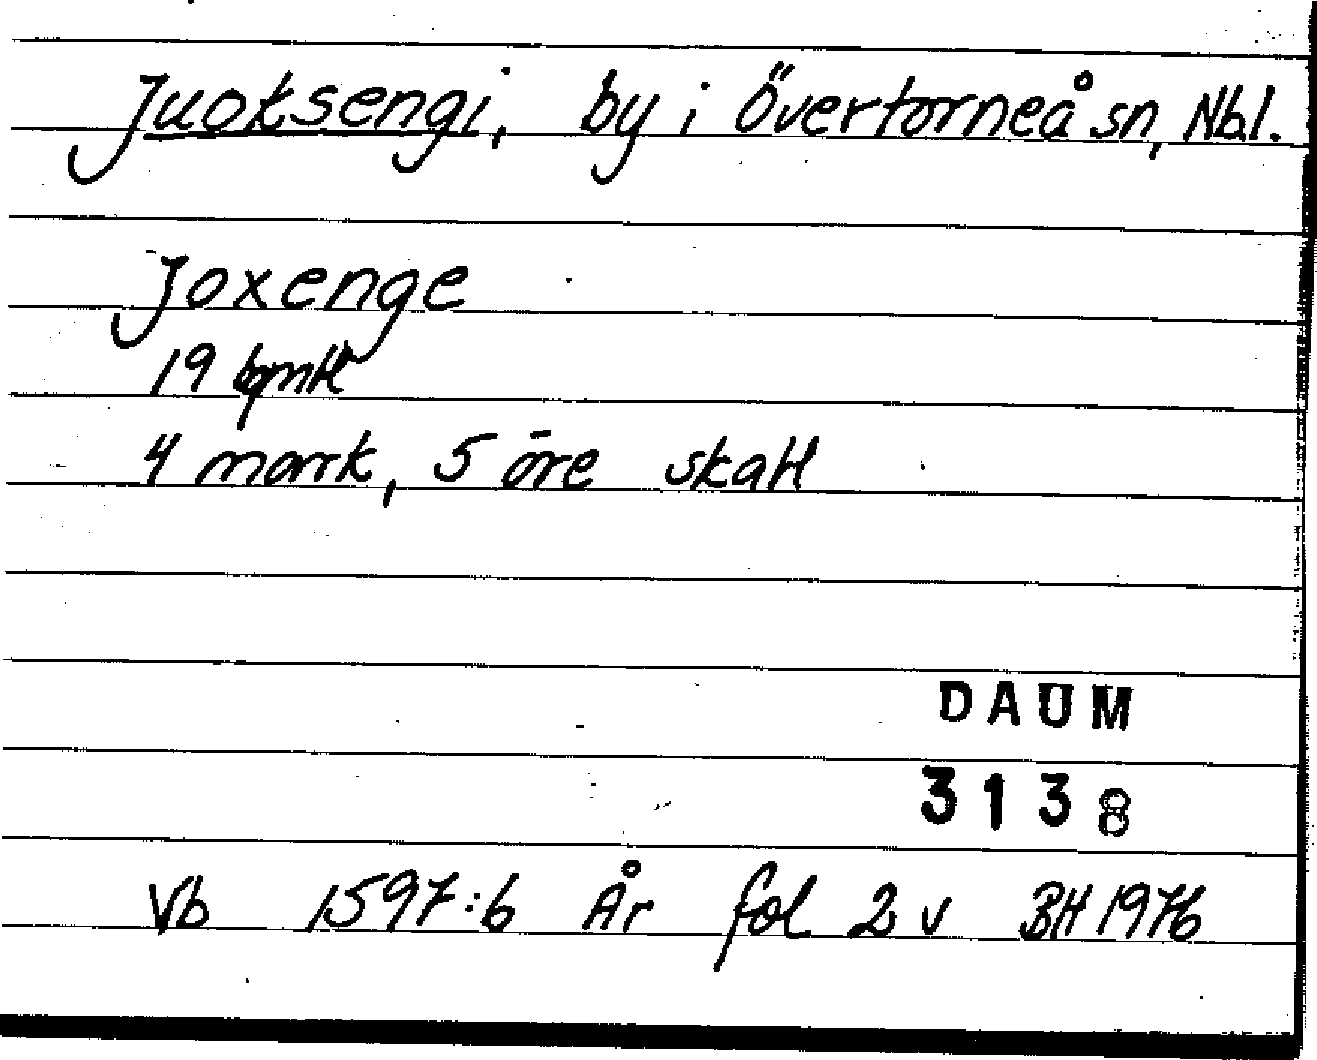 Juoksengi, by i Övertorneå sn, Nbl.
Joxenge
19 bymtl
4 mark, 5 öre skatt
DAUM
3138
Vb 1597:6 År fol 2 v BH 1976